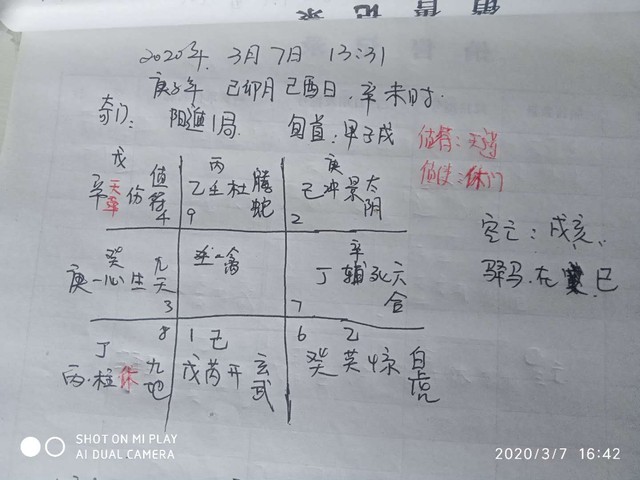 销售记录
2020年 3月7日 13:31
庚子年 己卯月 己酉日. 辛未时.
奇门: 阳遁1局. 旬首:甲子戌 值符:天蓬
值使:休门
戊
辛 天蓬 伤 值符
4
丙
乙壬杜 螣蛇
9
庚
己冲景 太阴
2
空亡:戌亥.
驿马.在 巳
癸
庚一心生 九天
3
禽
辛
丁辅死 六合
7
8
丁
丙·柱休 九地
1 己
戊芮开 玄武
6 乙
癸英惊 白虎
SHOT ON MI PLAY
AI DUAL CAMERA
2020/3/7 16:42